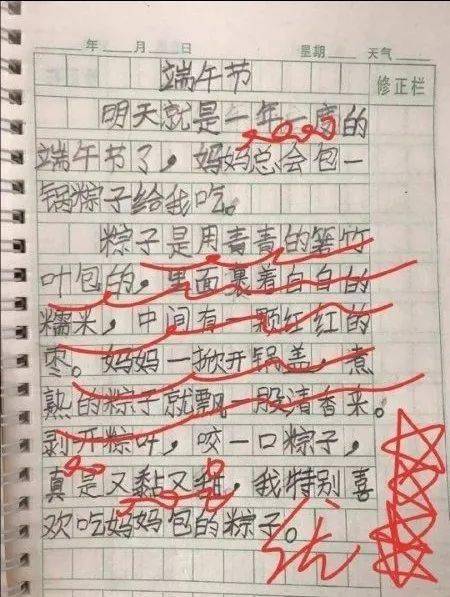 年 月 日 星期 天气
端午节 修正栏
明天就是一年一度的
端午节了，妈妈总会包一
锅粽子给我吃。
粽子是用青青的箬竹
叶包的，里面裹着白白的
糯米，中间有一颗红红的
枣。妈妈一掀开锅盖，煮
熟的粽子就飘一股清香来。
剥开粽叶，咬一口粽子，
真是又黏又甜，我特别喜
欢吃妈妈包的粽子。
优